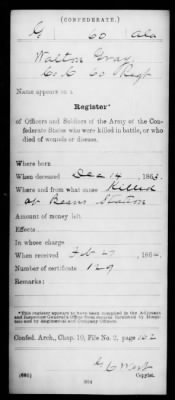 (CONFEDERATE.)
G 60 Ala
Walton Gray
Co. G 60 Regt
Name appears on a
Register*
of Officers and Soldiers of the Army of the Con-
federate States who were killed in battle, or who
died of wounds or disease.
Where born
When deceased Dec 14, 1863.
Where and from what cause Killed
at Beans Station
Amount of money left
Effects
In whose charge
When received Feb 27, 1864.
Number of certificate 129
Remarks:
*This register appears to have been compiled in the Adjutant
and Inspector General's Office from reports furnished by Hospi-
tals and by Regimental and Company Officers.
Confed. Arch., Chap. 10, File No. 2, page 152
Copyist.